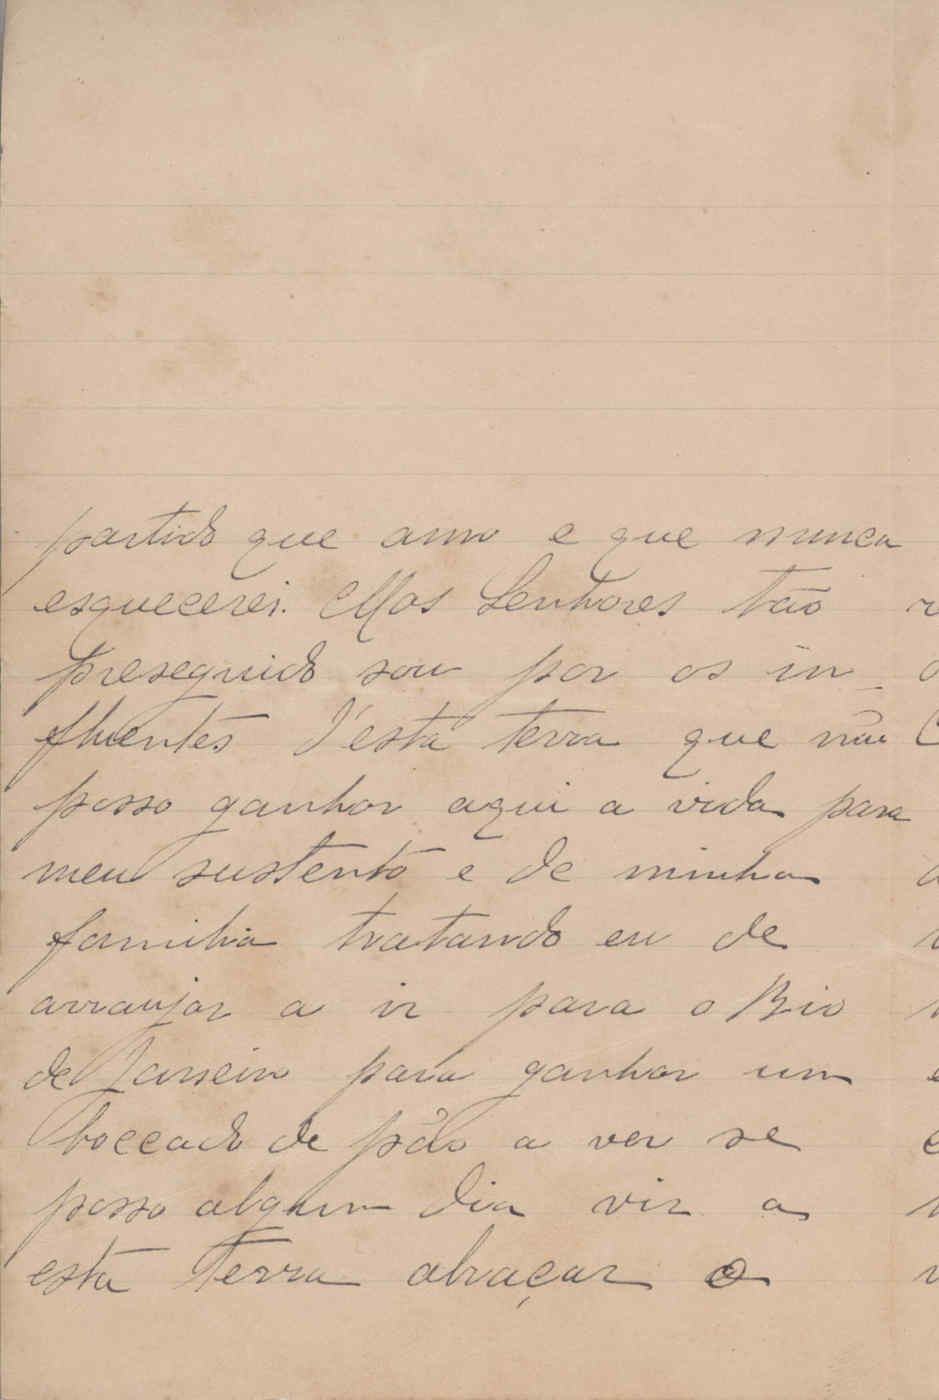 partido que amo e que nunca
esquecerei. Mas Senhores tão
preseguido sou por os in_
fluentes d'esta terra que não
posso ganhar aqui a vida para
meu sustento e de minha
familia tratando eu de
arranjar a ir para o Rio
de Janeiro para ganhar um
boccado de pão a ver se
posso algum dia vir a
esta terra abraçar o